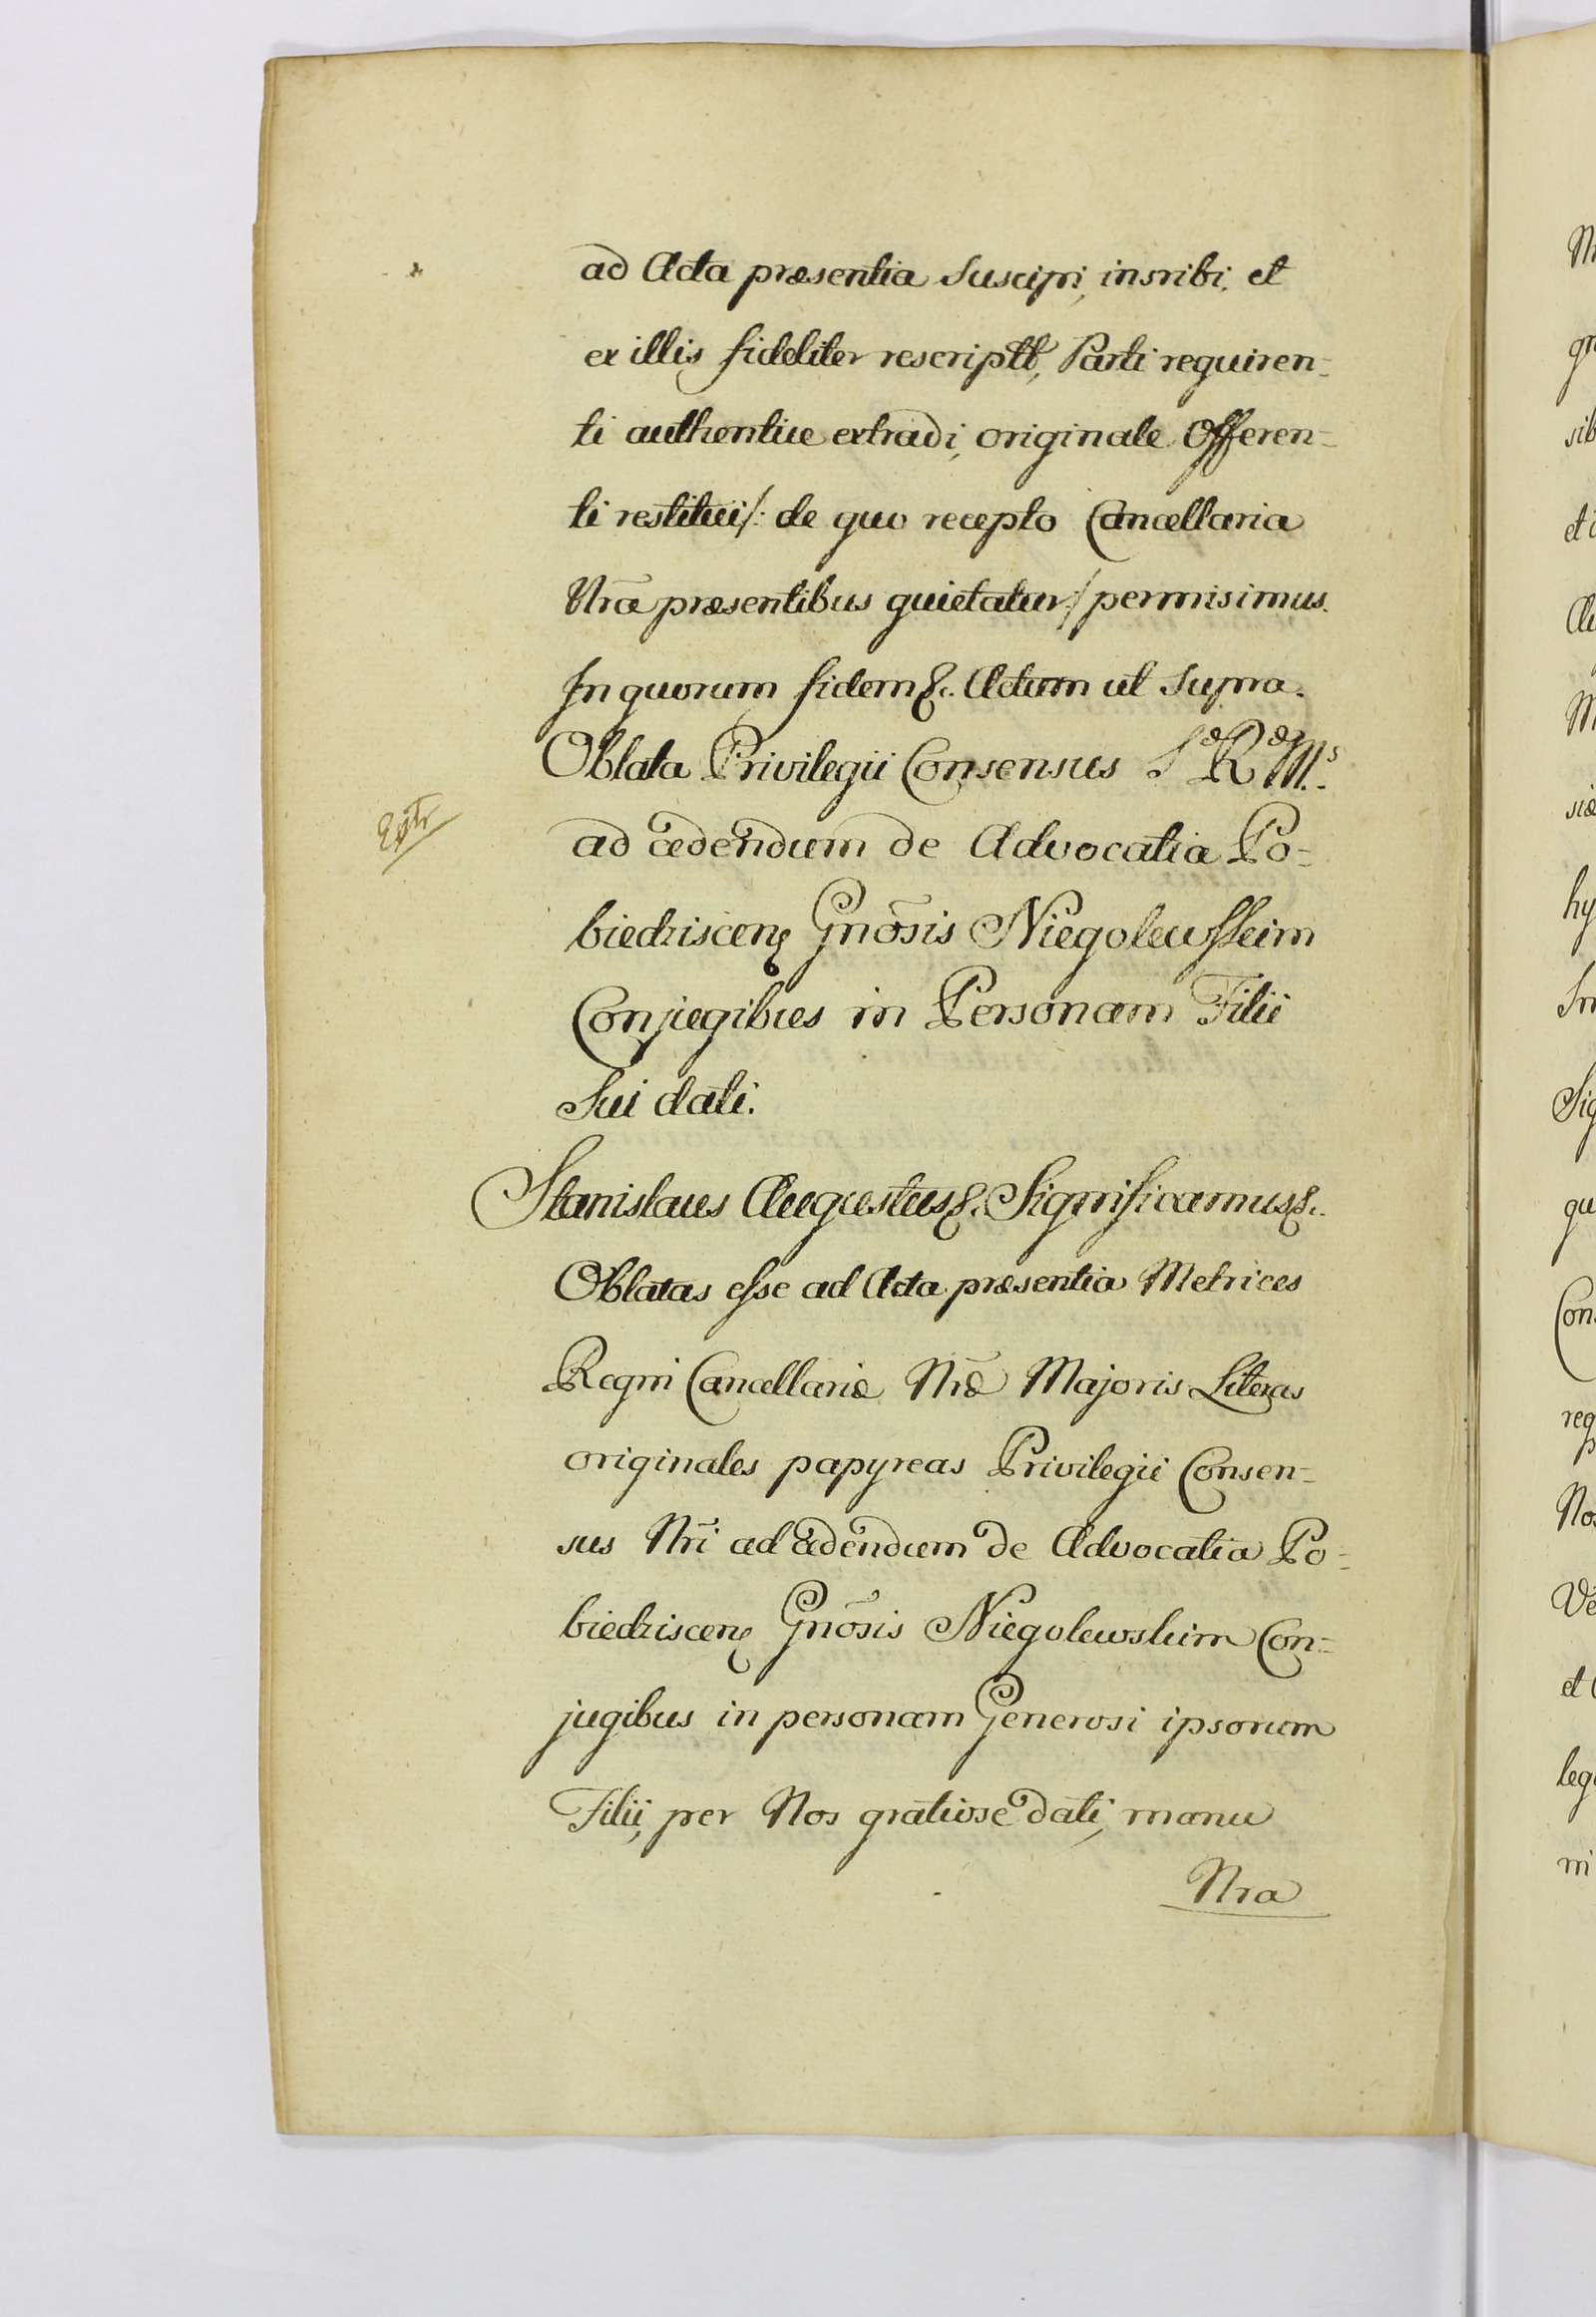 ad Acta præsentia suscipi, inscribi, et
ex illis fideliter rescriptt, Parti requiren=
ti authentice extradi, originale Offeren=
ti restitui /: de quo recepto Cancellaria
Nrã præsentibus quietatur :/ permisimus.
In quorum fidem &. Actum ut supra.
Oblata Privilegii Consensus S æ R æ M.s
Extr
ad cedendum de Advocatia Po=
biedziscen Gnõsis Niegolewsskim
Conjugibus in Personam Filii
sui dati.
Stanislaus Augustus &. Significamus &.
Oblatas esse ad Acta præsentia Metrices
Regni Cancellariæ Nræ Majoris Literas
originales papyreas Privilegii Consen=
sus Nri ad cedendum de Advocatia Po=
biedziscen Gnõsis Niegolewskim Con=
jugibus in personam Generosi ipsorum
Filii, per Nos gratiose dati, manu
Nra